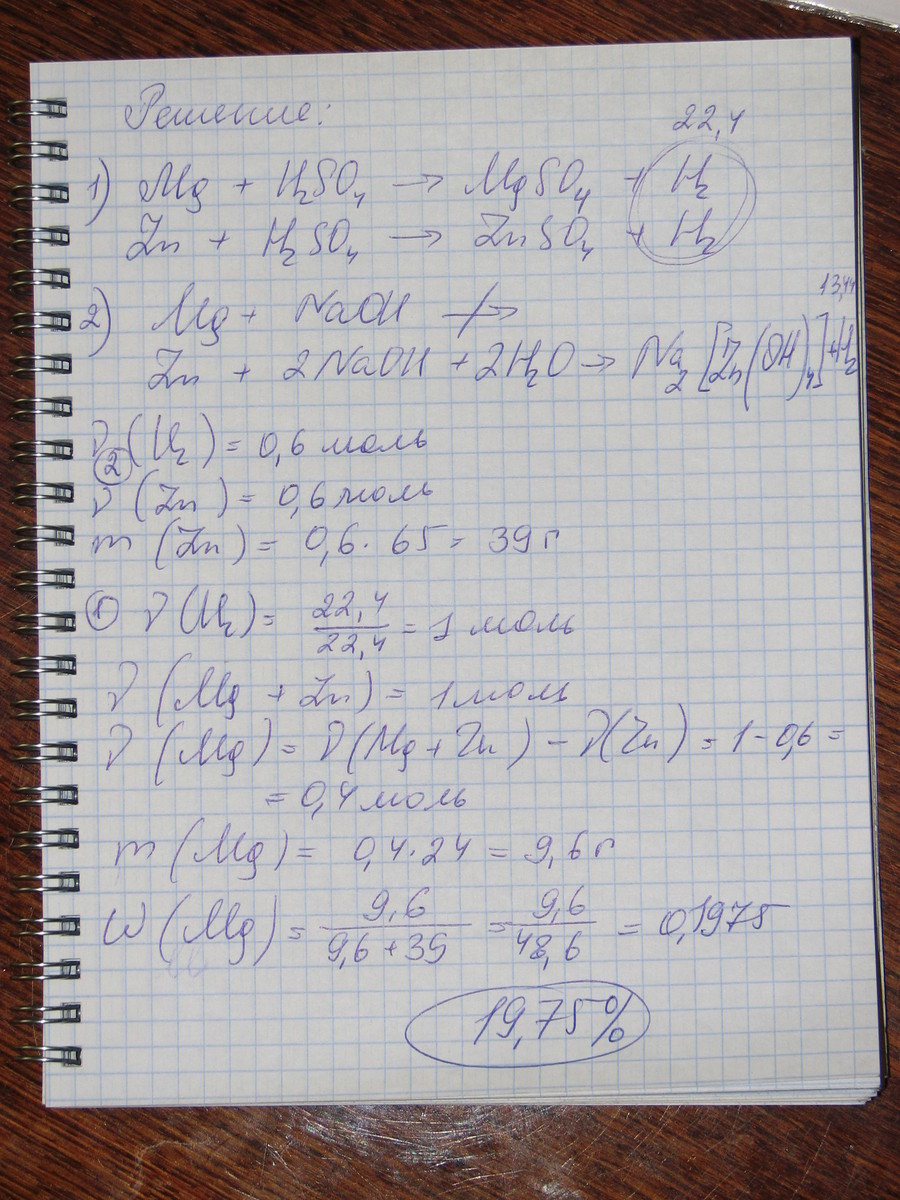 Решение:
22,4
1) Mg + H₂SO₄ → MgSO₄ + H₂
Zn + H₂SO₄ → ZnSO₄ + H₂
13,44
2) Mg + NaOH ↛
Zn + 2NaOH + 2H₂O → Na₂[Zn(OH)₄] + H₂
② ν(H₂) = 0,6 моль
ν(Zn) = 0,6 моль
m(Zn) = 0,6 · 65 = 39 г
① ν(H₂) = 22,4/22,4 = 1 моль
ν(Mg + Zn) = 1 моль
ν(Mg) = ν(Mg + Zn) - ν(Zn) = 1 - 0,6 =
= 0,4 моль
m(Mg) = 0,4 · 24 = 9,6 г
W(Mg) = 9,6/9,6 + 39 = 9,6/48,6 = 0,1975
19,75%